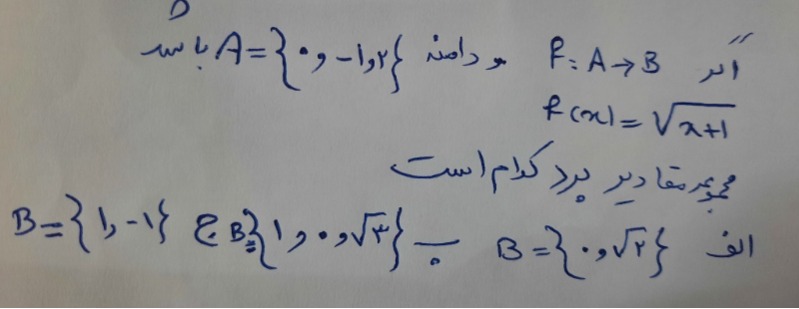 اگر f: A→B و دامنه A={۰ و -۱ و ۲} باشد
f(x)=√x+1
مجموعه مقادیر برد کدام است
الف B={۰ و √۲} ب B={۱ و ۰ و √۳} ج B={۱ و -۱}